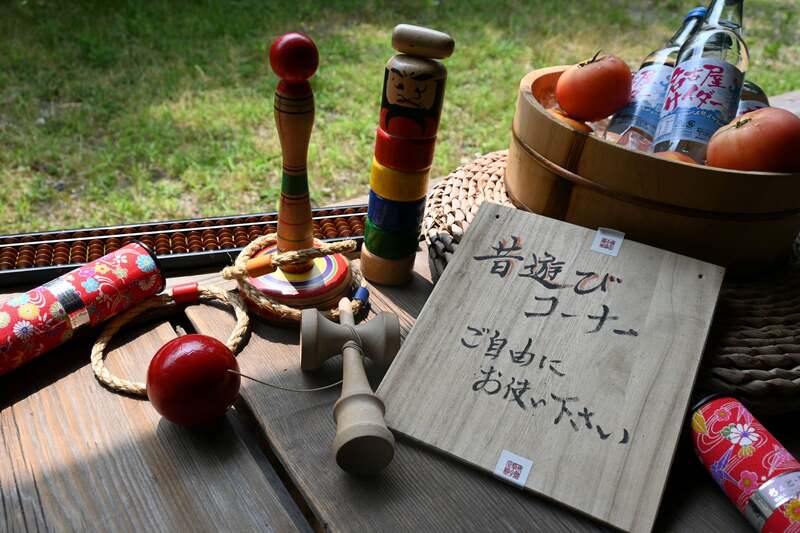 名古屋
サイダー
昔遊び
コーナー
ご自由に
お使い下さい